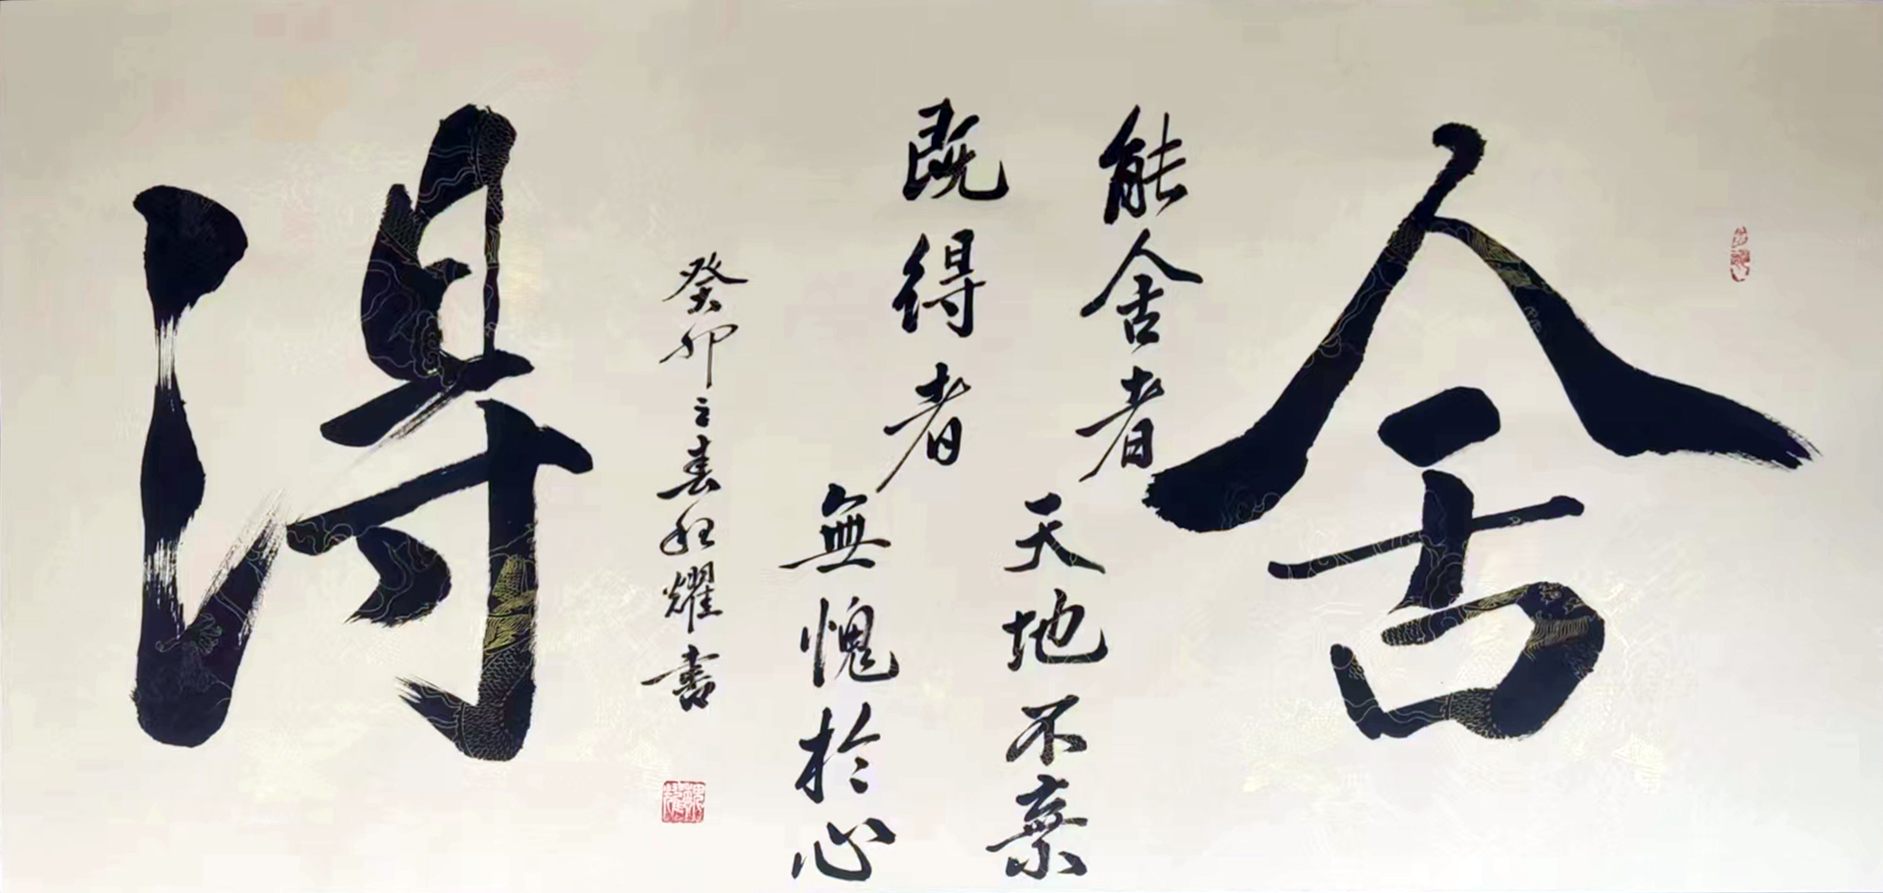 舍
能舍者
天地不棄
既得者
無愧於心
癸卯立春耀書
得